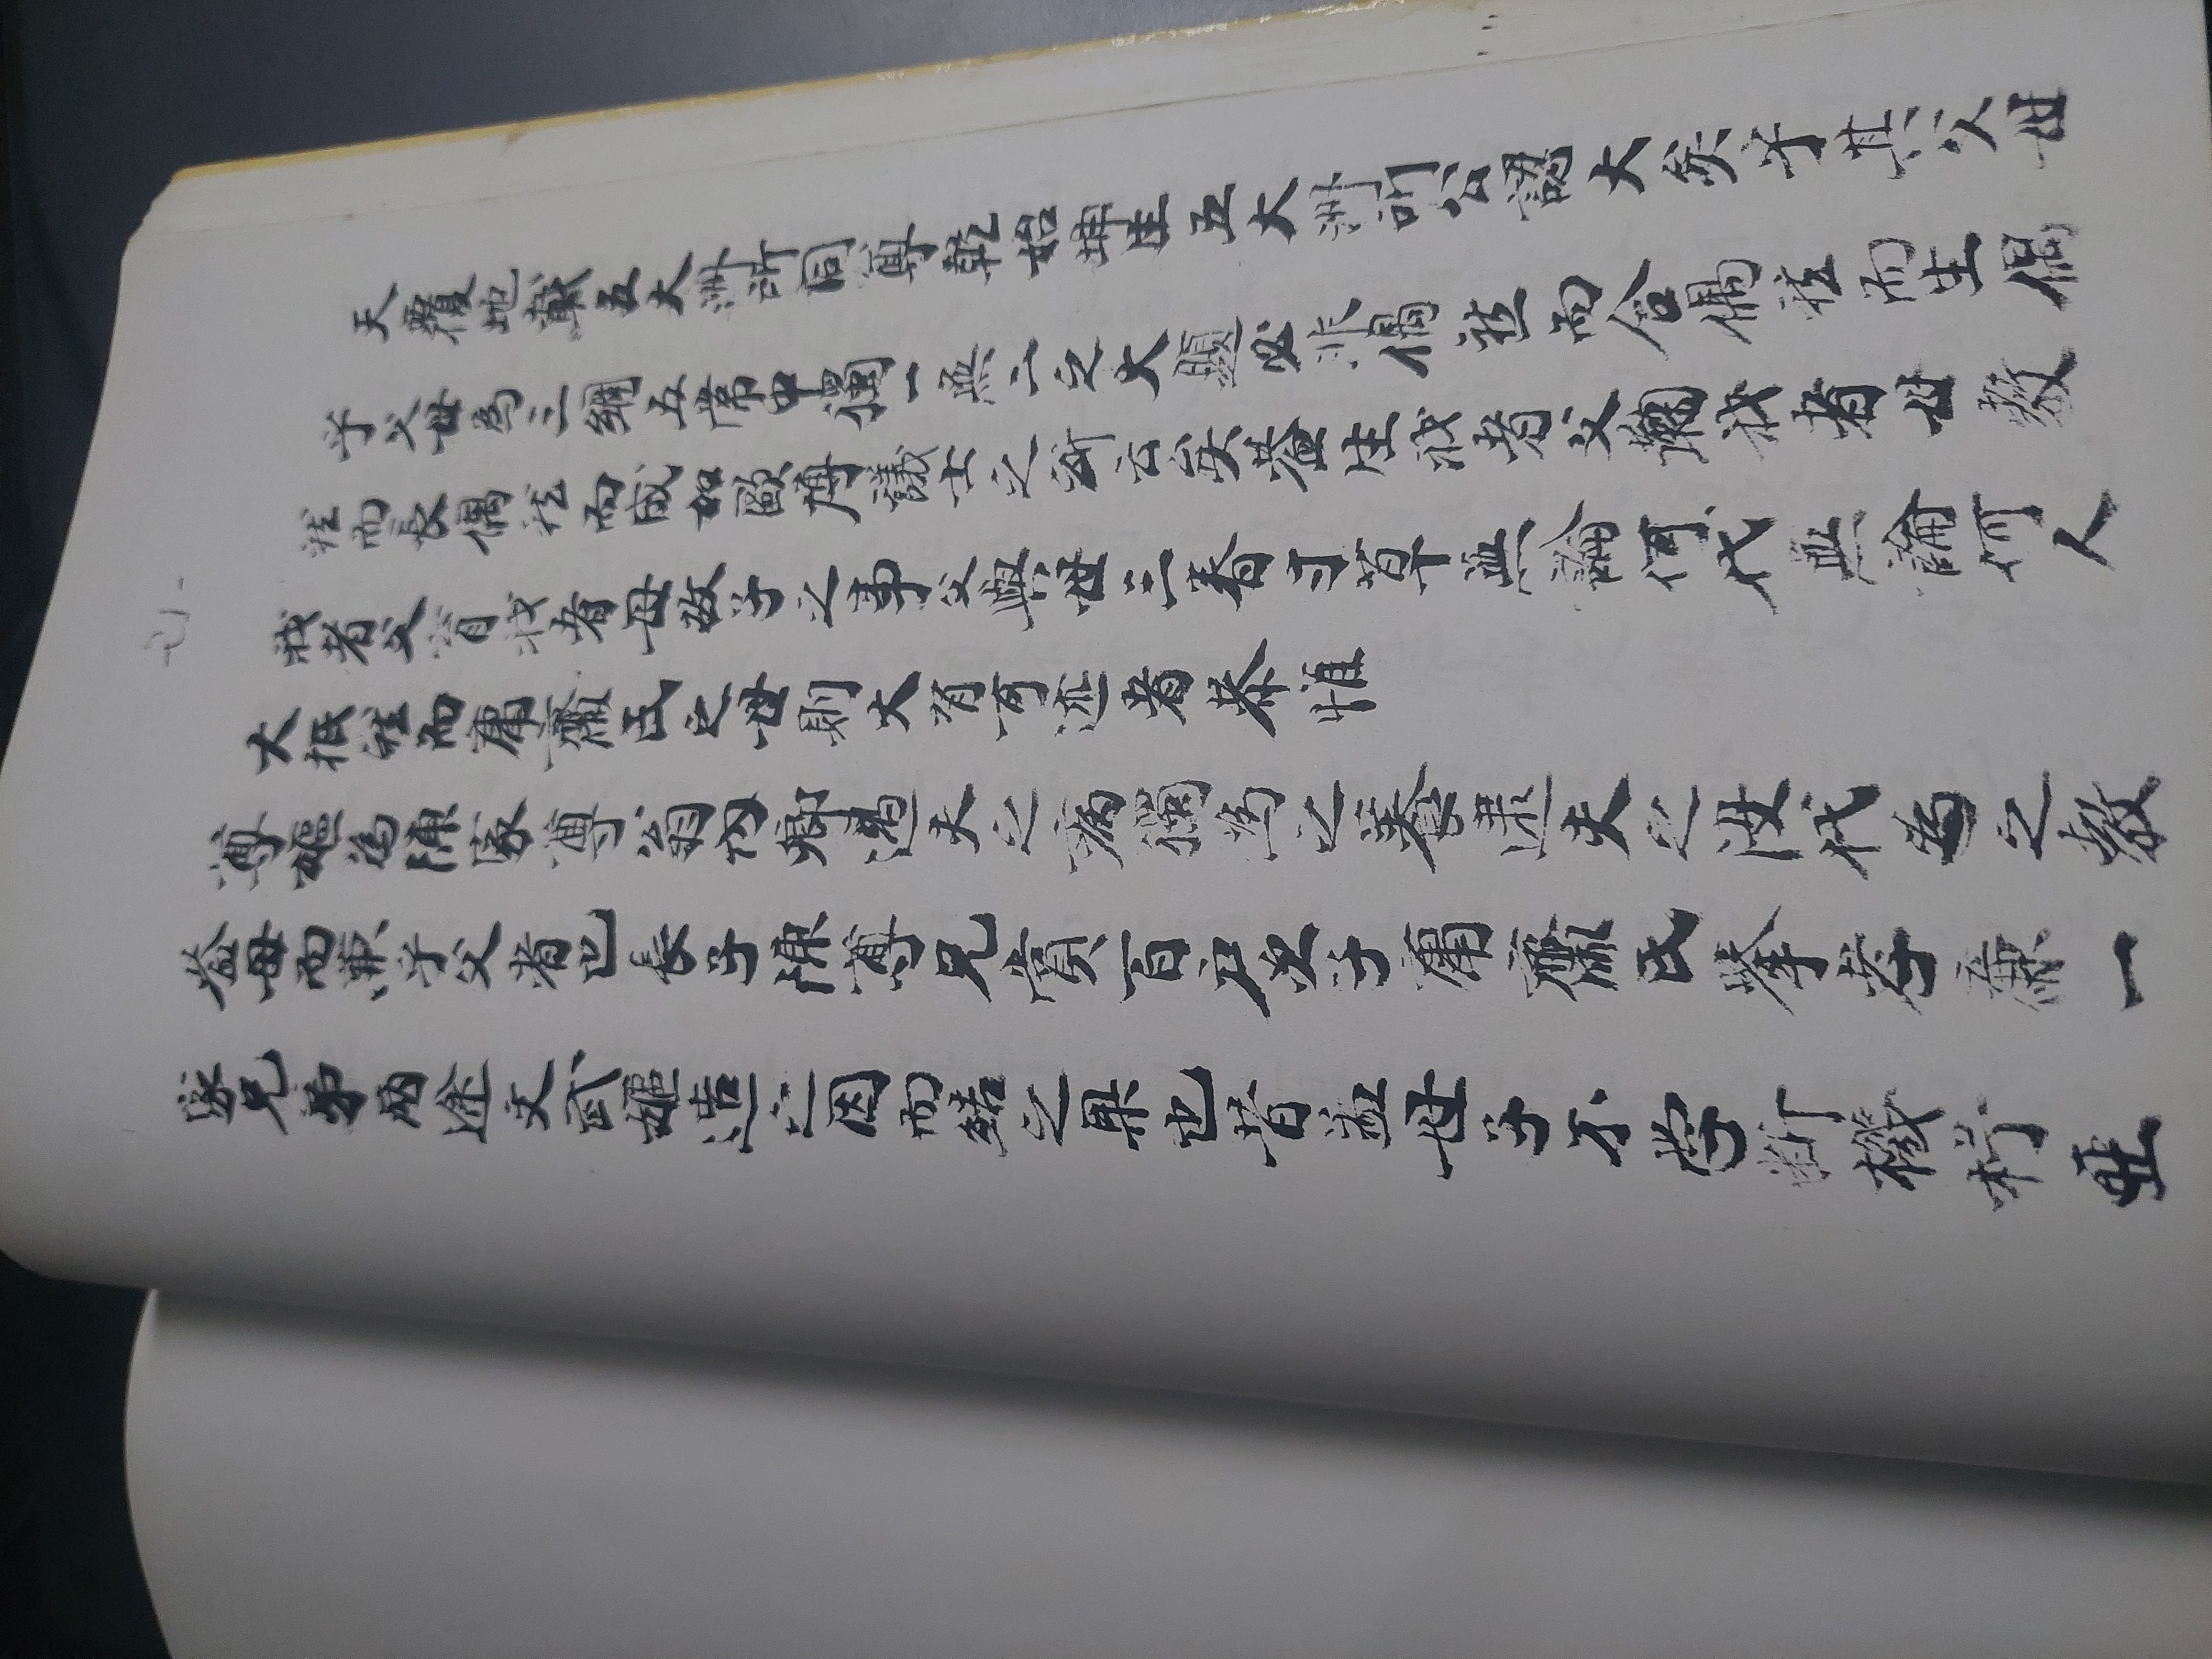 天覆地載五大洲所同尊乾始坤生五大洲所公認大矣乎其父母
乎父母為三綱五常中獨一無二之大題必非偶然而合偶然而生偶
然而長偶然而成如歐博議士之所云矣蓋生我者父鞠我者母教
我者父育我者母故子之事父與母三春寸草無論何代無論何人
大抵然而庸齋氏之母則大有可述者恭惟
尊嫗為陳家尊翁內鄉遇夫之病獨為之養逮夫之沒代為之教
益母而兼乎父者也長子陳尊兄賞百户次子庸齋氏舉孝廉一
家兄弟兩途文武嫗造之因而結之果也昔孟母子不学断機杼亜